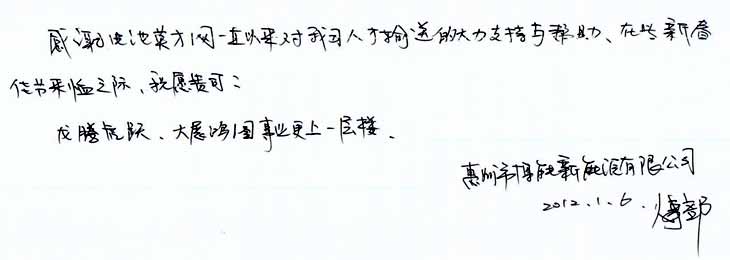 感谢电池英才网一直以来对我司人才输送的大力支持与帮助、在此新春
佳节来临之际、祝愿贵司：
龙腾虎跃、大展鸿图事业更上一层楼、
惠州市博能新能源有限公司
2012.1.6.